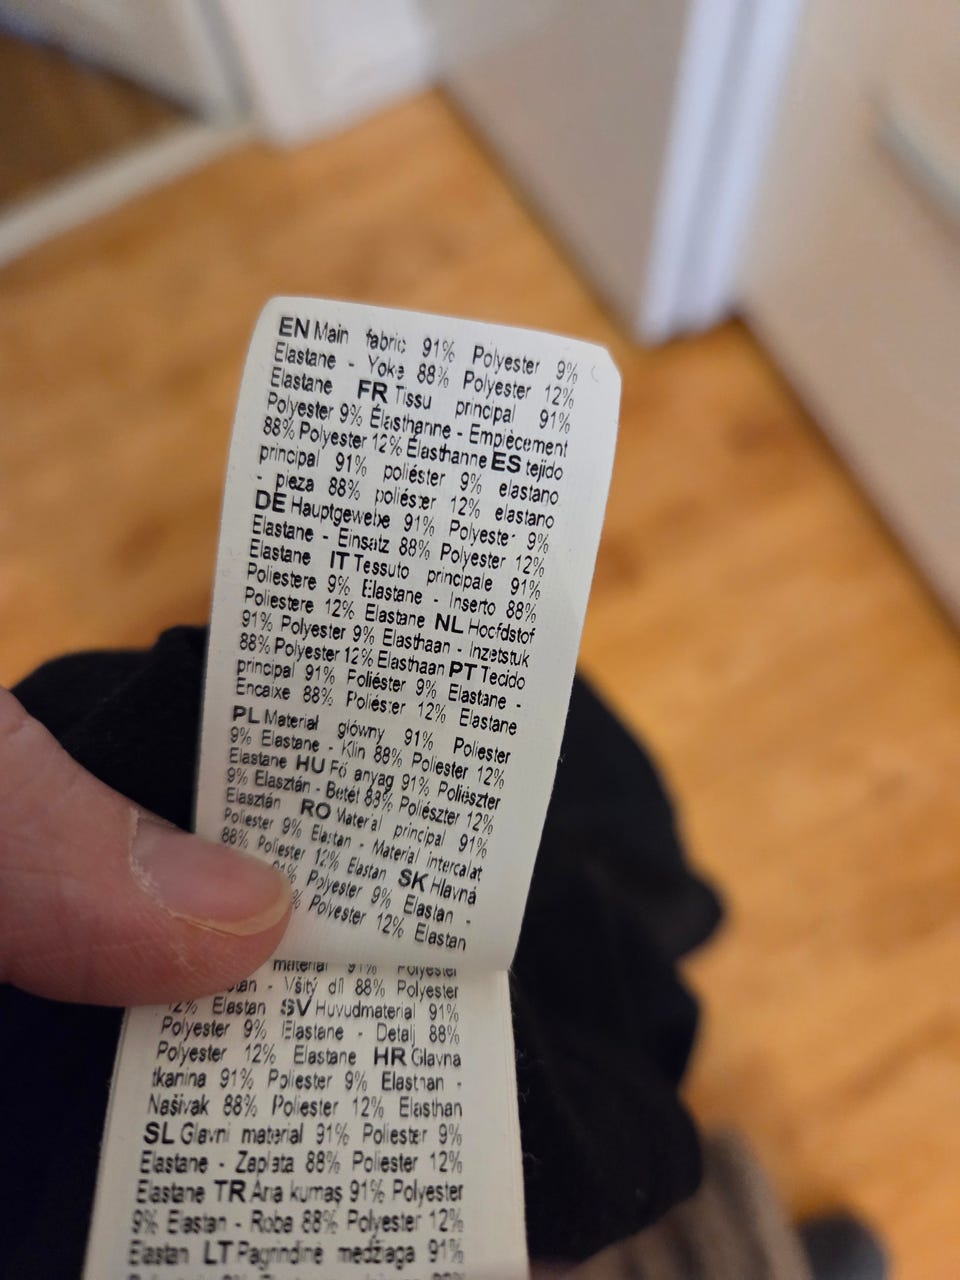 EN Main fabric 91% Polyester 9%
Elastane - Yoke 88% Polyester 12%
Elastane FR Tissu principal 91%
Polyester 9% Élasthanne - Empiècement
88% Polyester 12% Élasthanne ES tejido
principal 91% poliéster 9% elastano
- pieza 88% poliéster 12% elastano
DE Hauptgewebe 91% Polyester 9%
Elastane - Einsatz 88% Polyester 12%
Elastane IT Tessuto principale 91%
Poliestere 9% Elastane - Inserto 88%
Poliestere 12% Elastane NL Hoofdstof
91% Polyester 9% Elasthaan - Inzetstuk
88% Polyester 12% Elasthaan PT Tecido
principal 91% Poliéster 9% Elastane -
Encaixe 88% Poliéster 12% Elastane
PL Materiał główny 91% Poliester
9% Elastane - Klin 88% Poliester 12%
Elastane HU Fő anyag 91% Poliészter
9% Elasztán - Betét 88% Poliészter 12%
Elasztán RO Material principal 91%
Poliester 9% Elastan - Material intercalat
88% Poliester 12% Elastan SK Hlavná
91% Polyester 9% Elastan -
% Polyester 12% Elastan
materiál 91% Polyester
- Všitý díl 88% Polyester
12% Elastan SV Huvudmaterial 91%
Polyester 9% Elastane - Detalj 88%
Polyester 12% Elastane HR Glavna
tkanina 91% Poliester 9% Elasthan -
Našivak 88% Poliester 12% Elasthan
SL Glavni material 91% Poliester 9%
Elastane - Zaplata 88% Poliester 12%
Elastane TR Ana kumaş 91% Polyester
9% Elastan - Roba 88% Polyester 12%
Elastan LT Pagrindinė medžiaga 91%